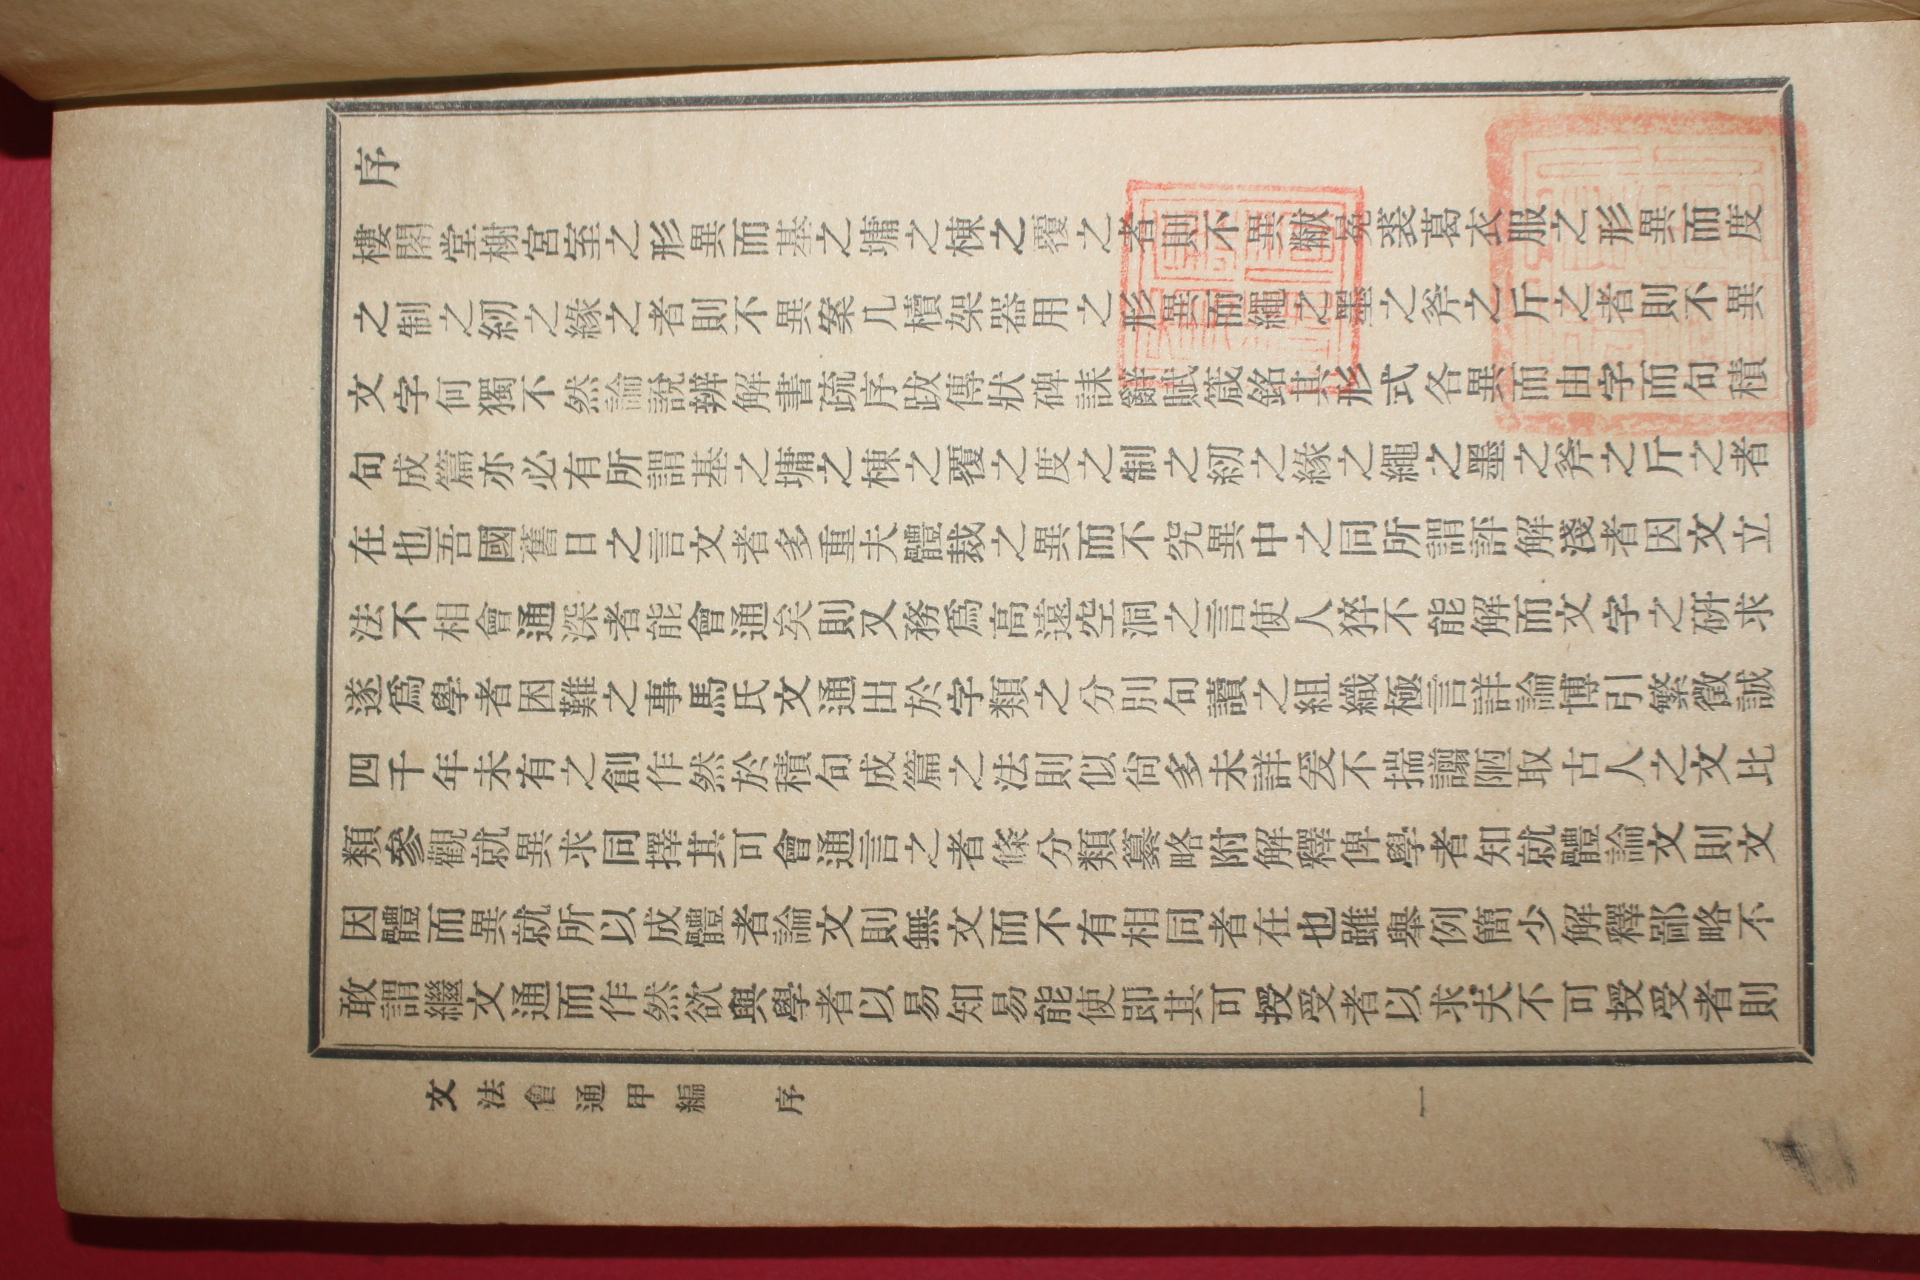 序
樓閣堂榭宮室之形異而基之墉之棟之覆之者則不異黻冕裘葛衣服之形異而度
之制之紉之緣之者則不異案几櫝架器用之形異而繩之墨之斧之斤之者則不異
文字何獨不然論說辨解書疏序跋傳狀碑誄辭賦箴銘其形式各異而由字而句積
句成篇亦必有所謂基之墉之棟之覆之度之制之紉之緣之繩之墨之斧之斤之者
在也吾國舊日之言文者多重夫體裁之異而不究異中之同所謂評解淺者因文立
法不相會通深者能會通矣則又務爲高遠空洞之言使人猝不能解而文字之硏求
遂爲學者困難之事馬氏文通出於字類之分別句讀之組織極言詳論博引繁徵誠
四千年未有之創作然於積句成篇之法則似尙多未詳爰不揣譾陋取古人之文比
類參觀就異求同擇其可會通言之者條分類纂略附解釋俾學者知就體論文則文
因體而異就所以成體者論文則無文而不有相同者在也雖舉例簡少解釋鄙略不
敢謂繼文通而作然欲與學者以易知易能使卽其可授受者以求夫不可授受者則
文法會通甲編 序 一